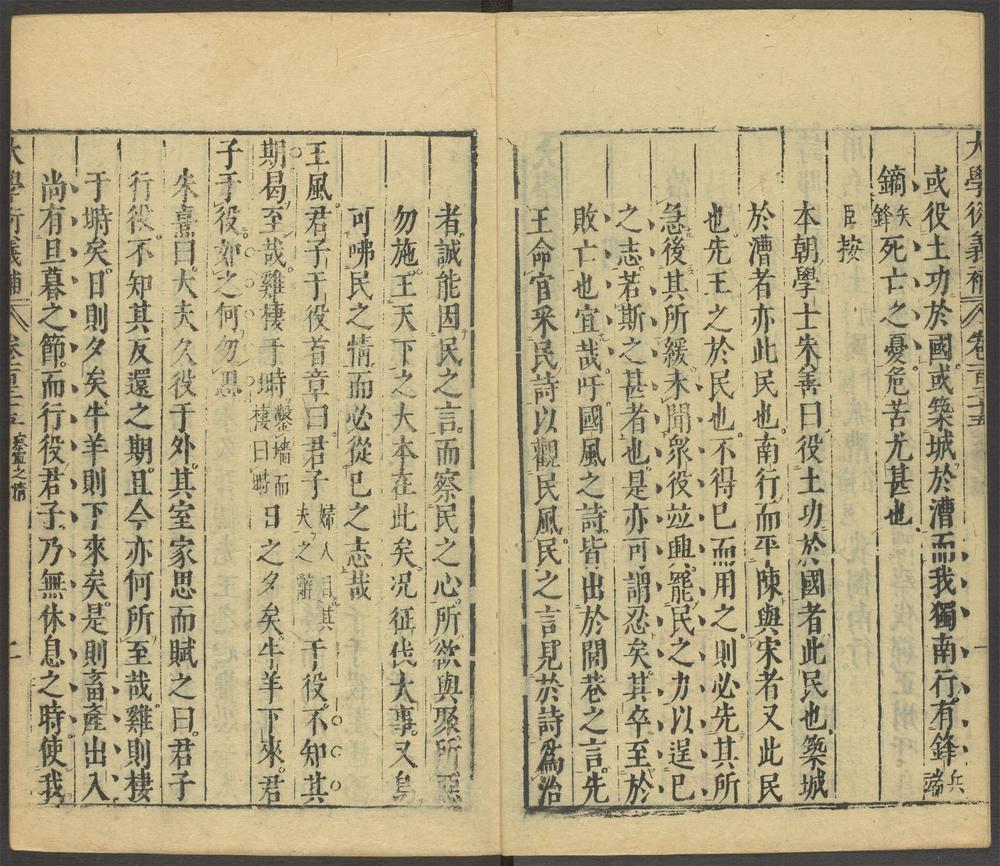 大學衍義補 卷一百三十五 一
或役土功於國或築城於漕而我獨南行有鋒兵端
鏑矢鋒死亡之憂危苦尤甚也
臣按
本朝學士朱善曰役土功於國者此民也築城
於漕者亦此民也南行而平陳與宋者又此民
也先王之於民也不得已而用之則必先其所
急後其所緩未聞衆役竝興罷民之力以逞已
之志若斯之甚者也是亦可謂忍矣其卒至於
敗亡也宜哉吁國風之詩皆出於閭巷之言先
王命官采民詩以觀民風民之言見於詩爲治
者誠能因民之言而察民之心所欲與聚所惡
勿施王天下之大本在此矣况征伐大事又烏
可咈民之情而必從已之志哉
王風君子于役首章曰君子婦人目其夫之辭于役不知其
期曷至哉雞棲于塒鑿墻而棲曰塒日之夕矣牛羊下來君
子于役如之何勿思
朱熹曰大夫久役于外其室家思而賦之曰君子
行役不知其反還之期且今亦何所至哉雞則棲
于塒矣日則夕矣牛羊則下來矣是則畜產出入
尚有旦暮之節而行役君子乃無休息之時使我
大學衍義補 卷百三十五 察軍之情 二